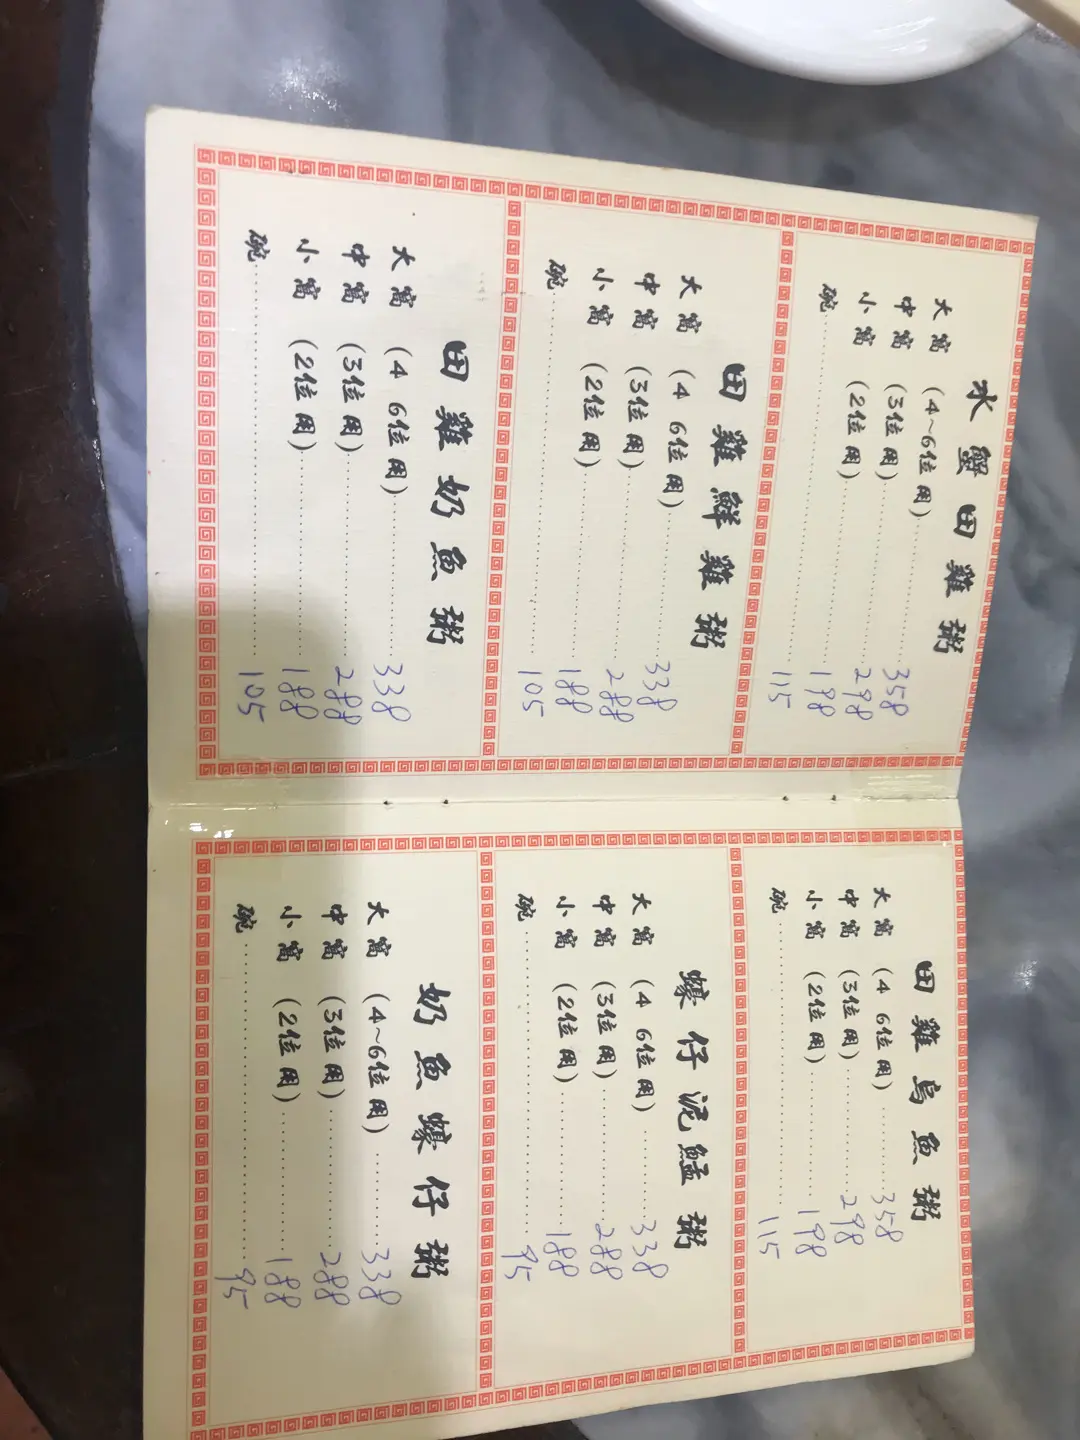 水蟹田雞粥
大窩 (4~6位用) 358
中窩 (3位用) 298
小窩 (2位用) 198
碗 115
田雞鮮雞粥
大窩 (4 6位用) 338
中窩 (3位用) 288
小窩 (2位用) 188
碗 105
田雞奶魚粥
大窩 (4 6位用) 338
中窩 (3位用) 288
小窩 (2位用) 188
碗 105
田雞烏魚粥
大窩 (4 6位用) 358
中窩 (3位用) 298
小窩 (2位用) 198
碗 115
蠔仔泥鯭粥
大窩 (4 6位用) 338
中窩 (3位用) 288
小窩 (2位用) 188
碗 95
奶魚蠔仔粥
大窩 (4~6位用) 338
中窩 (3位用) 288
小窩 (2位用) 188
碗 95